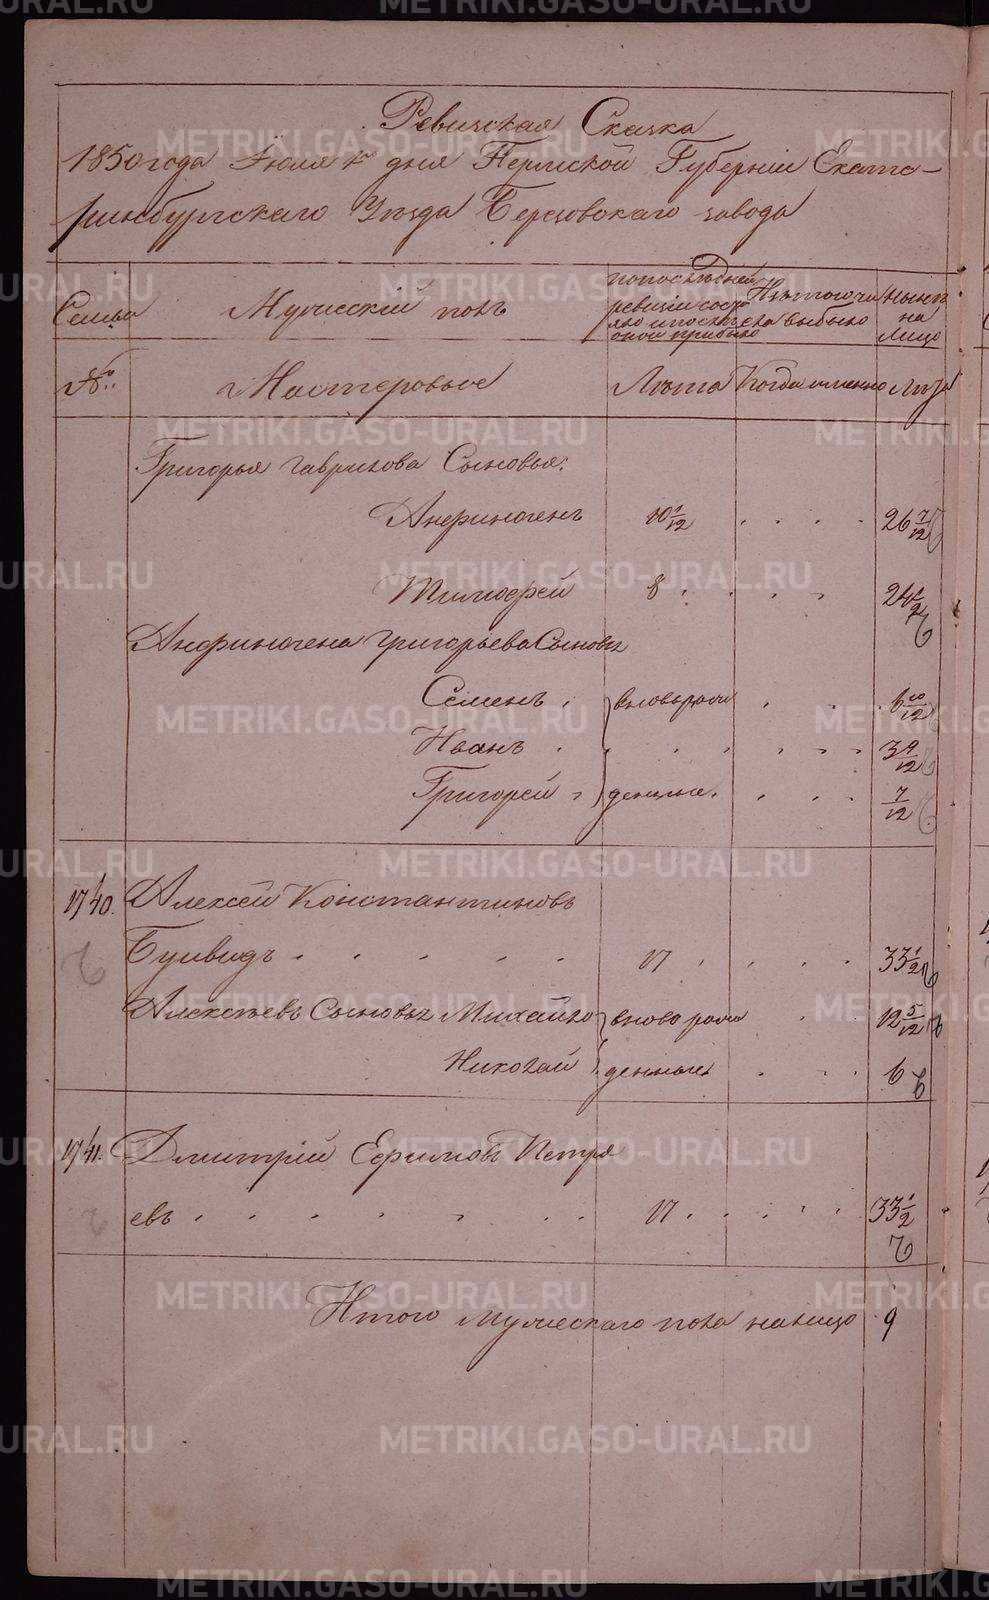 Ревизская Сказка
1850 года Июля 1го дня Пермской Губерніи Екате-
ринбургскаго Уѣзда Березовскаго завода
Семьи
Мужескій полъ
попослѣдней ревизіи состояло и послѣ оной прибыло
Изъ того числа выбыло
нынѣ на лицо
№
Мастеровые
Лѣта
Когда именно
Лѣта
Григорья Гаврилова Сыновья:
Анфиногенъ 10 1/12 . . . . 26 7/12
Тимофей 8 . . . . 24 1/2
Анфиногена Григорьева Сыновья
Семенъ . вновьрож . . . 6 10/12
Иванъ . . . . . . . 3 9/12
Григорей . денные . . . 7/12
17/40. Алексей Константиновъ
17 . . . . 33 1/2
Алексѣевы Сыновья Михайло вново рож . . 12 5/12
Николай денные . . . 6
17/41. Дмитрій Ефимовъ Петро
евъ . . . . . . . 17 . . . . . 33 1/2
Итого мужескаго пола налицо 9
METRIKI.GASO-URAL.RU